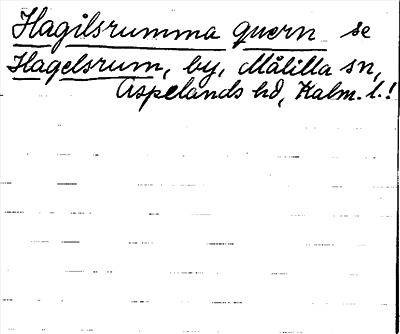 Hagilsrumma quern se
Hagelsrum, by, Målilla sn,
Aspelands hd, Kalm. l.!